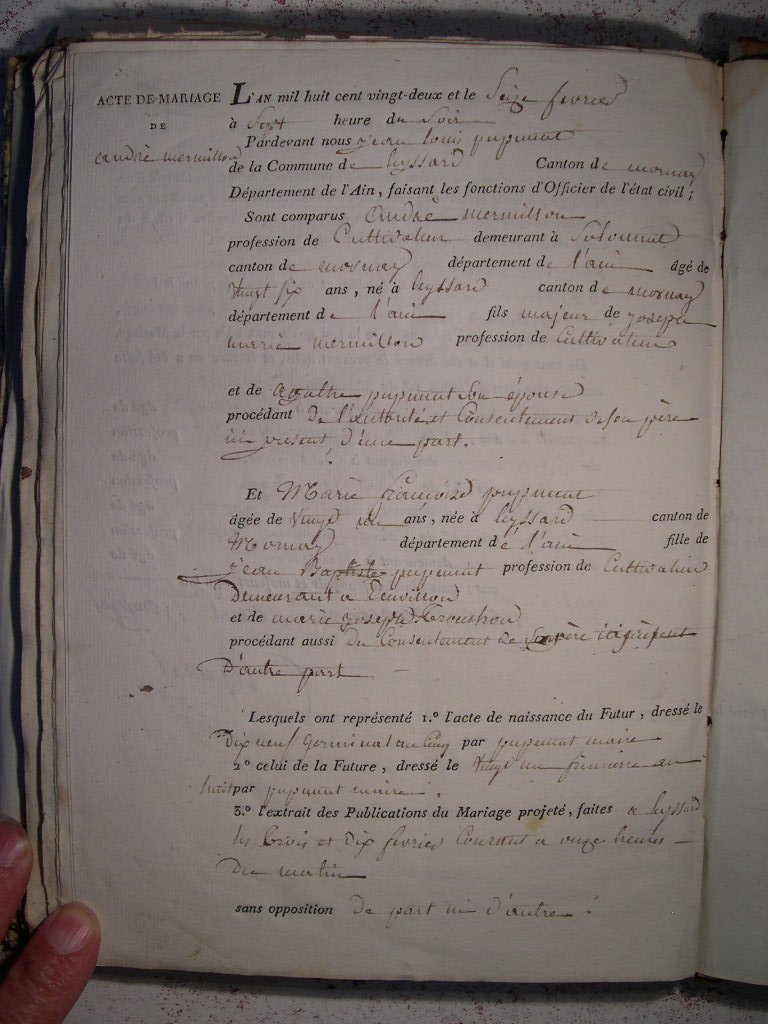 ACTE DE MARIAGE
DE
andré mermillon
L'AN mil huit cent vingt-deux et le Seize fevrier
à Sept heure du Soir
Pardevant nous jean louis pupunat
de la Commune de leyssard Canton de mornay
Département de l'Ain, faisant les fonctions d'Officier de l'état civil ;
Sont comparus André mermillon
profession de Cultivateur demeurant à Solomiat
canton de mornay département de l'ain âgé de
vingt six ans, né à leyssard canton de mornay
département de l'ain fils majeur de joseph
marie mermillon profession de Cultivateur
et de agathe pupunat Son épouse
procédant De l'autorité et Consentement de son père
ici present, d'une part.
Et Marie françoise pupunat
âgée de vingt un ans, née à leyssard canton de
Mornay département de l'ain fille de
jean Baptiste pupunat profession de Cultivateur
Demeurant a
et de marie joseph
procédant aussi du Consentement de Son père ici présent
D'autre part
Lesquels ont représenté 1.° l'acte de naissance du Futur, dressé le
Dix neuf Germinal an Cinq par pupunat maire
2° celui de la Future, dressé le vingt un frimaire an
huit par pupunat maire.
3.° l'extrait des Publications du Mariage projeté, faites a leyssard
les trois et Dix fevrier Courant a onze heures
Du matin
sans opposition de part ni d'autre.